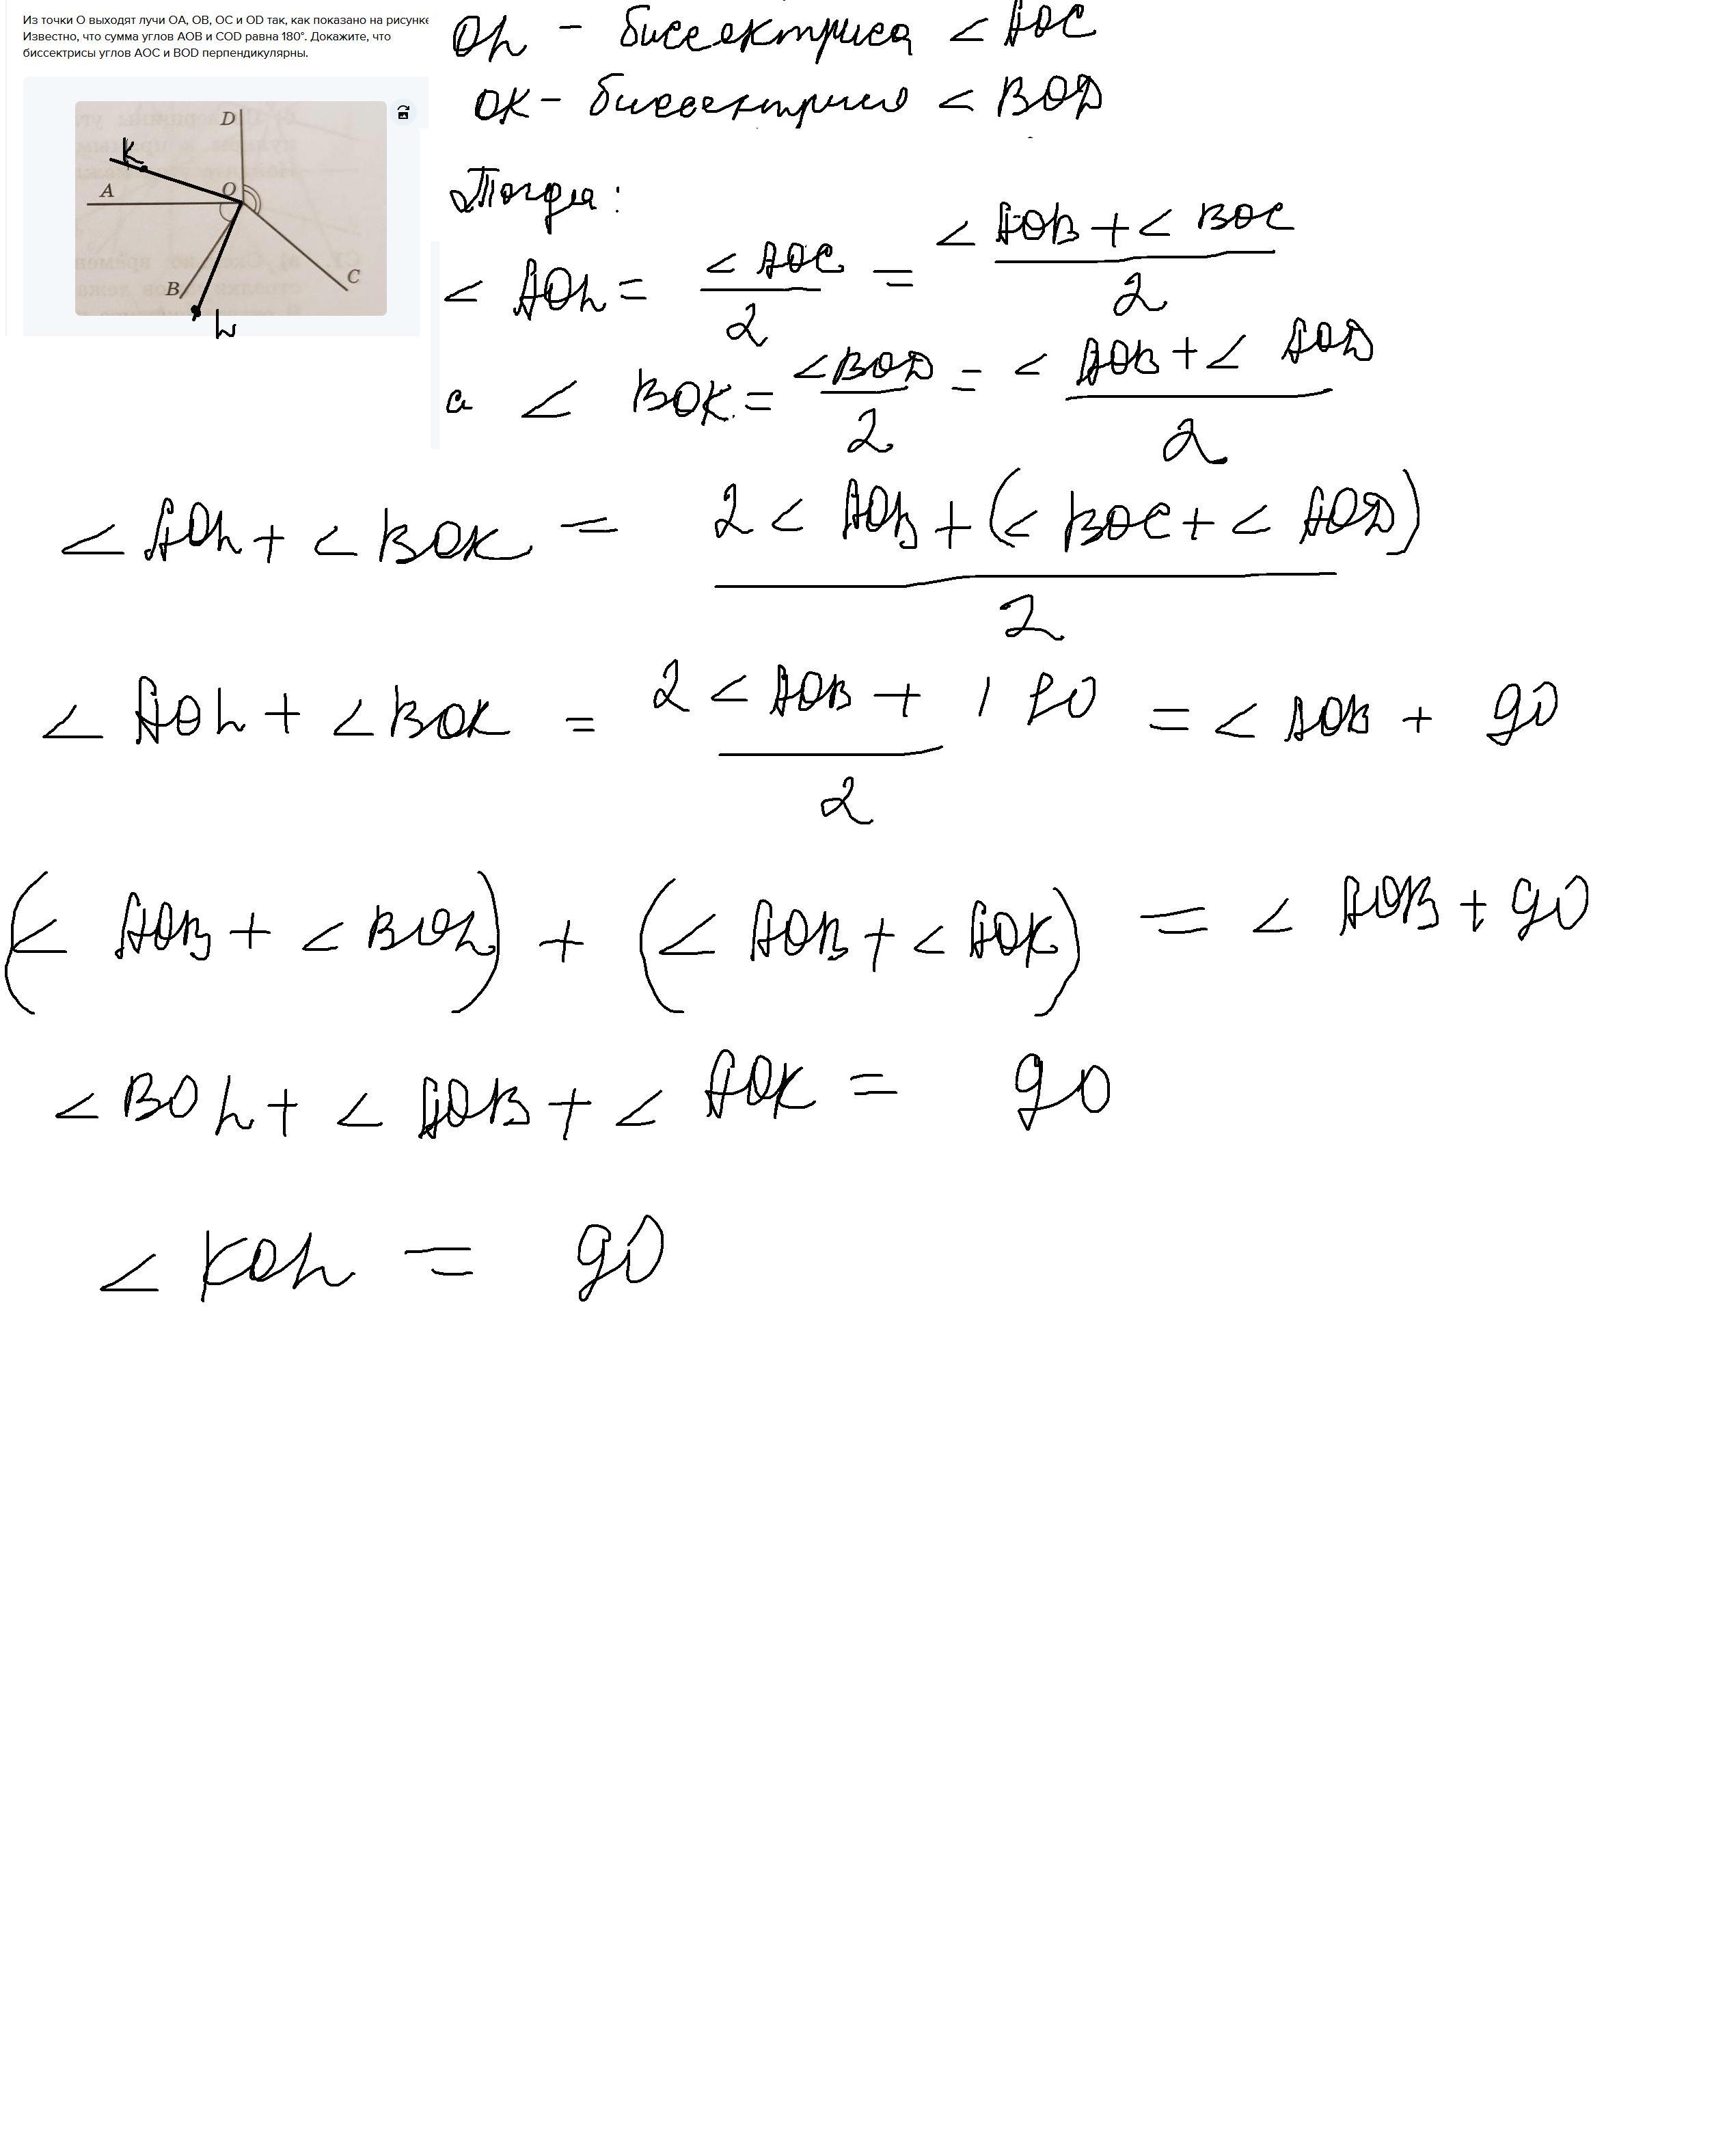 Из точки О выходят лучи ОА, ОВ, ОС и OD так, как показано на рисунке
Известно, что сумма углов АОВ и COD равна 180°. Докажите, что
биссектрисы углов АОС и BOD перпендикулярны.
D
K
A
O
B
C
h
Oh - биссектриса < AOC
OK - биссектриса < BOD
Тогда:
< AOh = < AOC / 2 = < AOB + < BOC / 2
а < BOK = < BOD / 2 = < AOB + < AOD / 2
< AOh + < BOK = 2 < AOB + (< BOC + < AOD) / 2
< AOh + < BOK = 2 < AOB + 180 / 2 = < AOB + 90
(< AOB + < BOh) + (< AOB + < AOK) = < AOB + 90
< BOh + < AOB + < AOK = 90
< KOh = 90